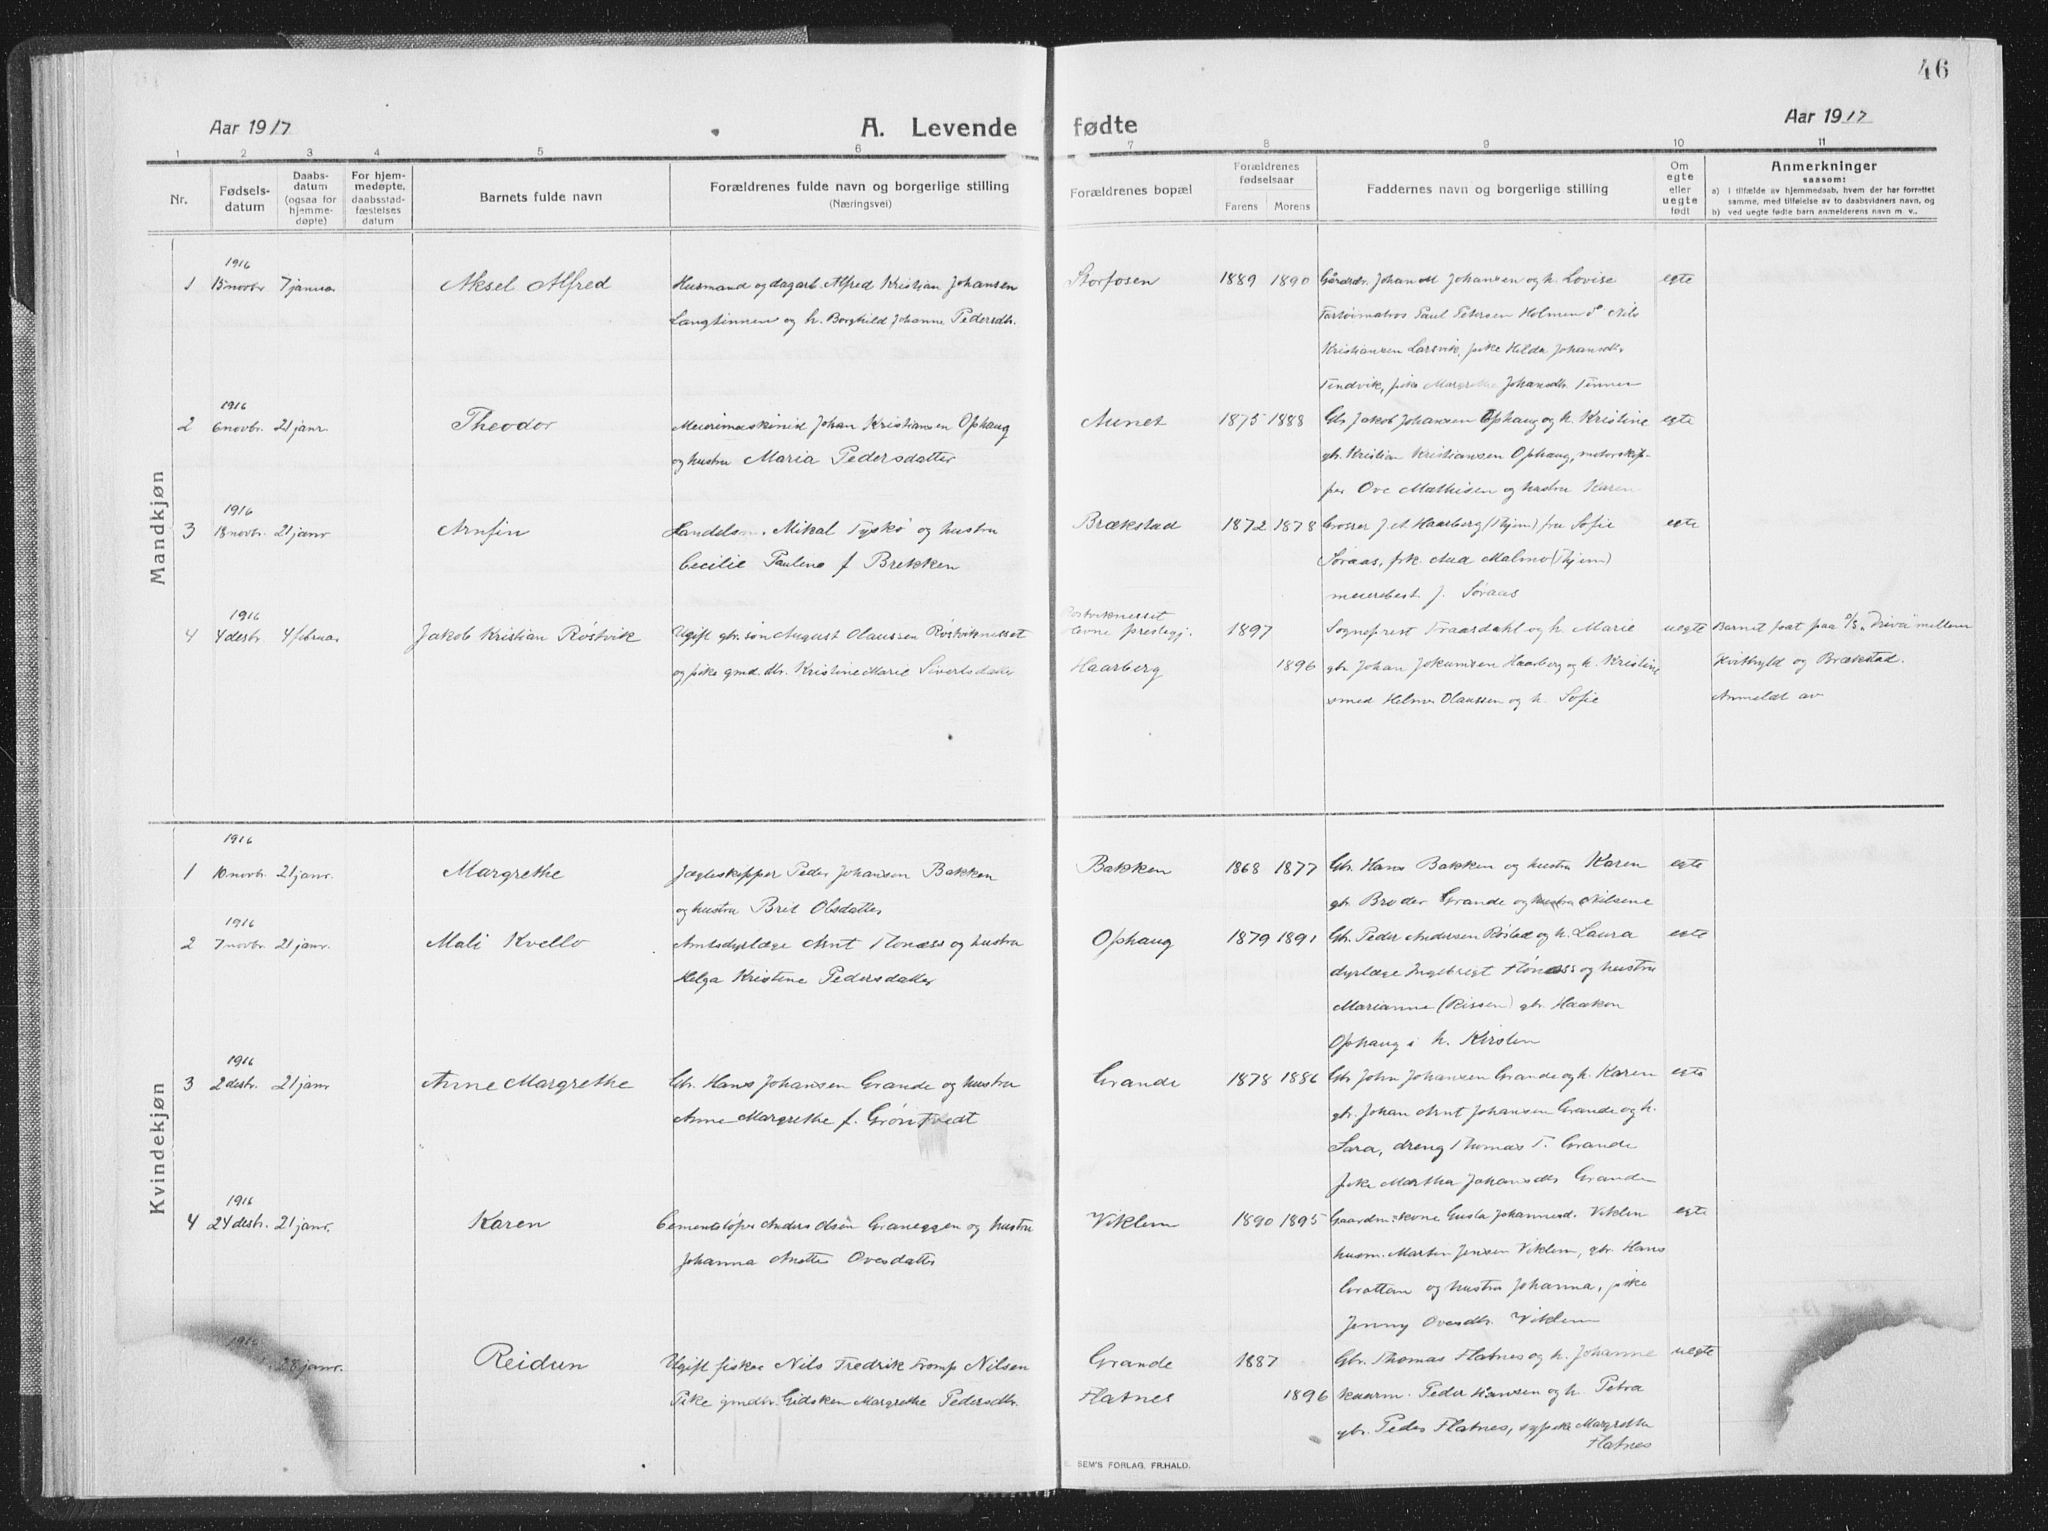 46
Aar 1917
A. Levende fødte
Aar 1917
1 2 3 4 5 6 7 8 9 10 11
Nr.
Fødsels-
datum
Daabs-
datum
(ogsaa for
hjemme-
døpte)
For hjem-
medøpte,
daabsstad-
fæstelses
datum
Barnets fulde navn
Forældrenes fulde navn og borgerlige stilling
(Næringsvei)
Forældrenes bopæl
Forældrenes
fødselsaar
Farens Morens
Faddernes navn og borgerlige stilling
Om
egte
eller
uegte
født
Anmerkninger
saasom:
a) i tilfælde av hjemmedaab, hvem der har forrettet
samme, med tilføielse av to daabsvidners navn, og
b) ved uegte fødte barn anmelderens navn m. v.,
Mandkjøn
1916
1 15 novbr 7 januar Aksel Alfred Husmand og dagarb. Alfred Kristian Johansen Storfosen 1889 1890 Johan Johansen og h. Lovise egte
Langtinnen og h. Borghild Johanne Pedersdtr. Paul Petersen Holmen Nils
Kristiansen Larsvik, pike Hilda Johansdtr
Tindvik, pike Margrethe Johansdtr. Tinnen
1916
2 6 novbr. 21 janr. Theodor Meierimaskinist Johan Kristiansen Ophaug Aunet 1875 1888 Gbr Jakob Johansen Ophaug og h. Kristine egte
og hustru Maria Pedersdatter gbr. Kristian Kristiansen Ophaug, motorskip-
per Ove Mathisen og hustru Karen
1916
3 18 novbr. 21 janr Arnfin Handelsm. Mikal Tyskø og hustru Brækstad 1872 1878 Grosser J. A. Haarberg (Thjem) fru Sofie egte
Cecilie Pauline f. Brekken Søraas, frk. Aud Malmo (Thjem)
meieribest. J. Søraas
1916
4 4 desbr. 4 februar Jakob Kristian Röstvik Ugift gbr. søn August Olaussen Röstviknesset Röstviknesset
Hevne prestegj. 1897 Sogneprest Fraardahl og h. Marie uegte Barnet født paa D/S "Driva" mellem
og pike gmd. dtr. Kristine Marie Sivertsdatter Haarberg 1896 gbr. Johan Jokumsen Haarberg og h. Kristine Kvithyld og Brækstad.
smed Helmer Olaussen og h. Sofie Anmeldt av
Kvindekjøn
1916
1 10 novbr. 21 janr. Margrethe Jægteskipper Peder Johansen Bakken Bakken 1868 1877 Gbr. Hans Bakken og hustru Karen egte
og hustru Brit Olsdatter gbr. Broder Grande og hustru Nilsine
1916
2 7 novbr. 21 janr. Mali Kvello Amtsdyrlæge Arnt Flönæss og hustru Ophaug 1879 1891 Gbr. Peder Andersen Röstad og h. Laura egte
Helga Kristine Pedersdatter dyrlæge Ingebrigt Flönæss og hustru
Marianne (Rissen) gbr. Haakon
Ophaug i h. Kirsten
1916
3 2 desbr. 21 janr Anne Margrethe Gbr. Hans Johansen Grande og hustru Grande 1878 1886 Gbr John Johansen Grande og h. Karen egte
Anne Margrethe f. Grøntvedt gbr. Johan Arnt Johansen Grande og h.
Sara, dreng Thomas T. Grande
pike Martha Johansdtr Grande
1916
4 24 desbr. 21 janr. Karen Cementstøper Anders Olsen Graneggen og hustru Viklem 1890 1895 Gaardm: kone Gusta Johannesd. Viklem egte
Johanna Anette Ovesdatter husm. Martin Jensen Viklem, gbr. Hans
Grøttan og hustru Johanna, pike
Jenny Ovesdtr. Viklem
1916
28 janr. Reidun Ugift fisker Nils Fredrik Tromp Nilsen Grande 1887 Gbr. Thomas Flatnes og h. Johanne uegte
Pike gmdtr. Gidsken Margrethe Pedersdtr. Flatnes 1896 kaarm. Peder Hansen og h. Petra
gbr. Peder Flatnes, sypike Margrethe
Flatnes
SEM'S FORLAG, FR.HALD.